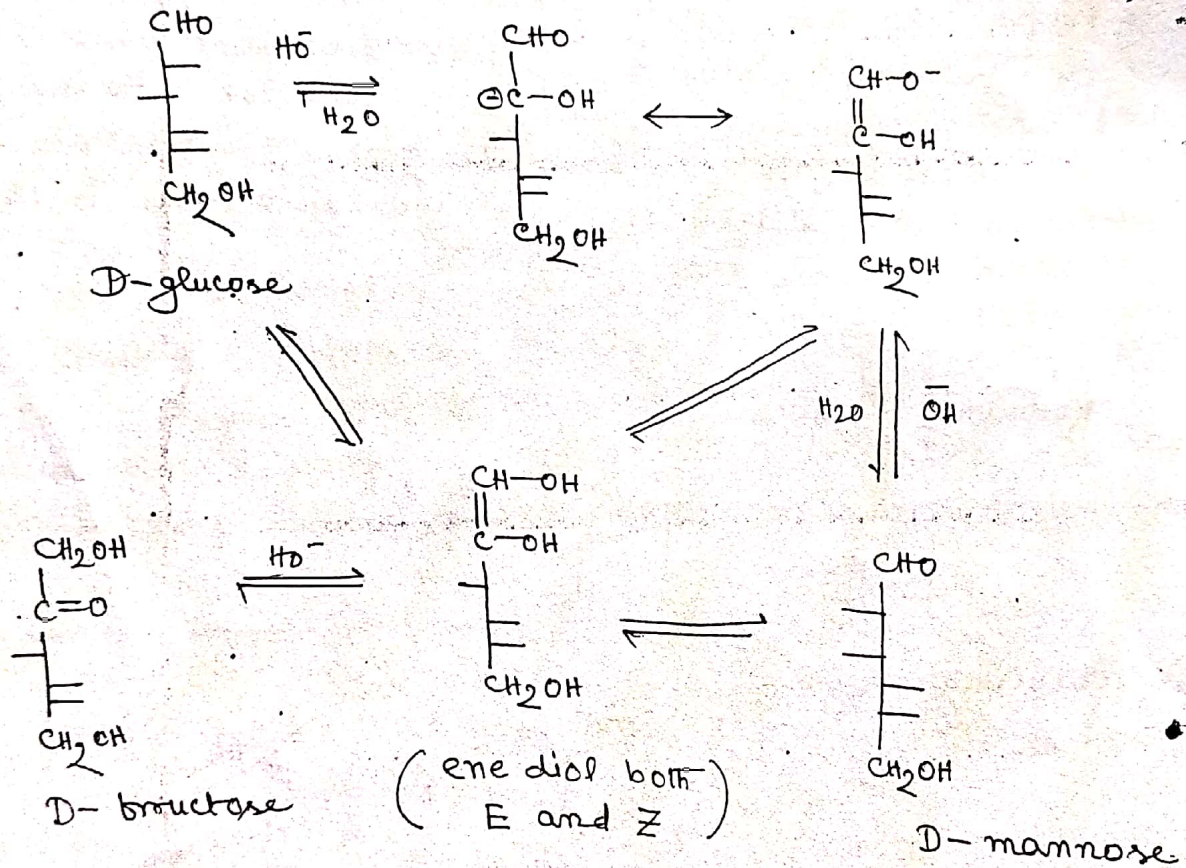 CHO
HO⁻
H2O
CH2OH
D-glucose
CHO
⊖C-OH
CH2OH
CH-O⁻
C-OH
CH2OH
H2O
OH⁻
CH-OH
C-OH
CH2OH
(ene diol both
E and Z)
CH2OH
C=O
CH2OH
D-fructose
HO⁻
CHO
CH2OH
D-mannose